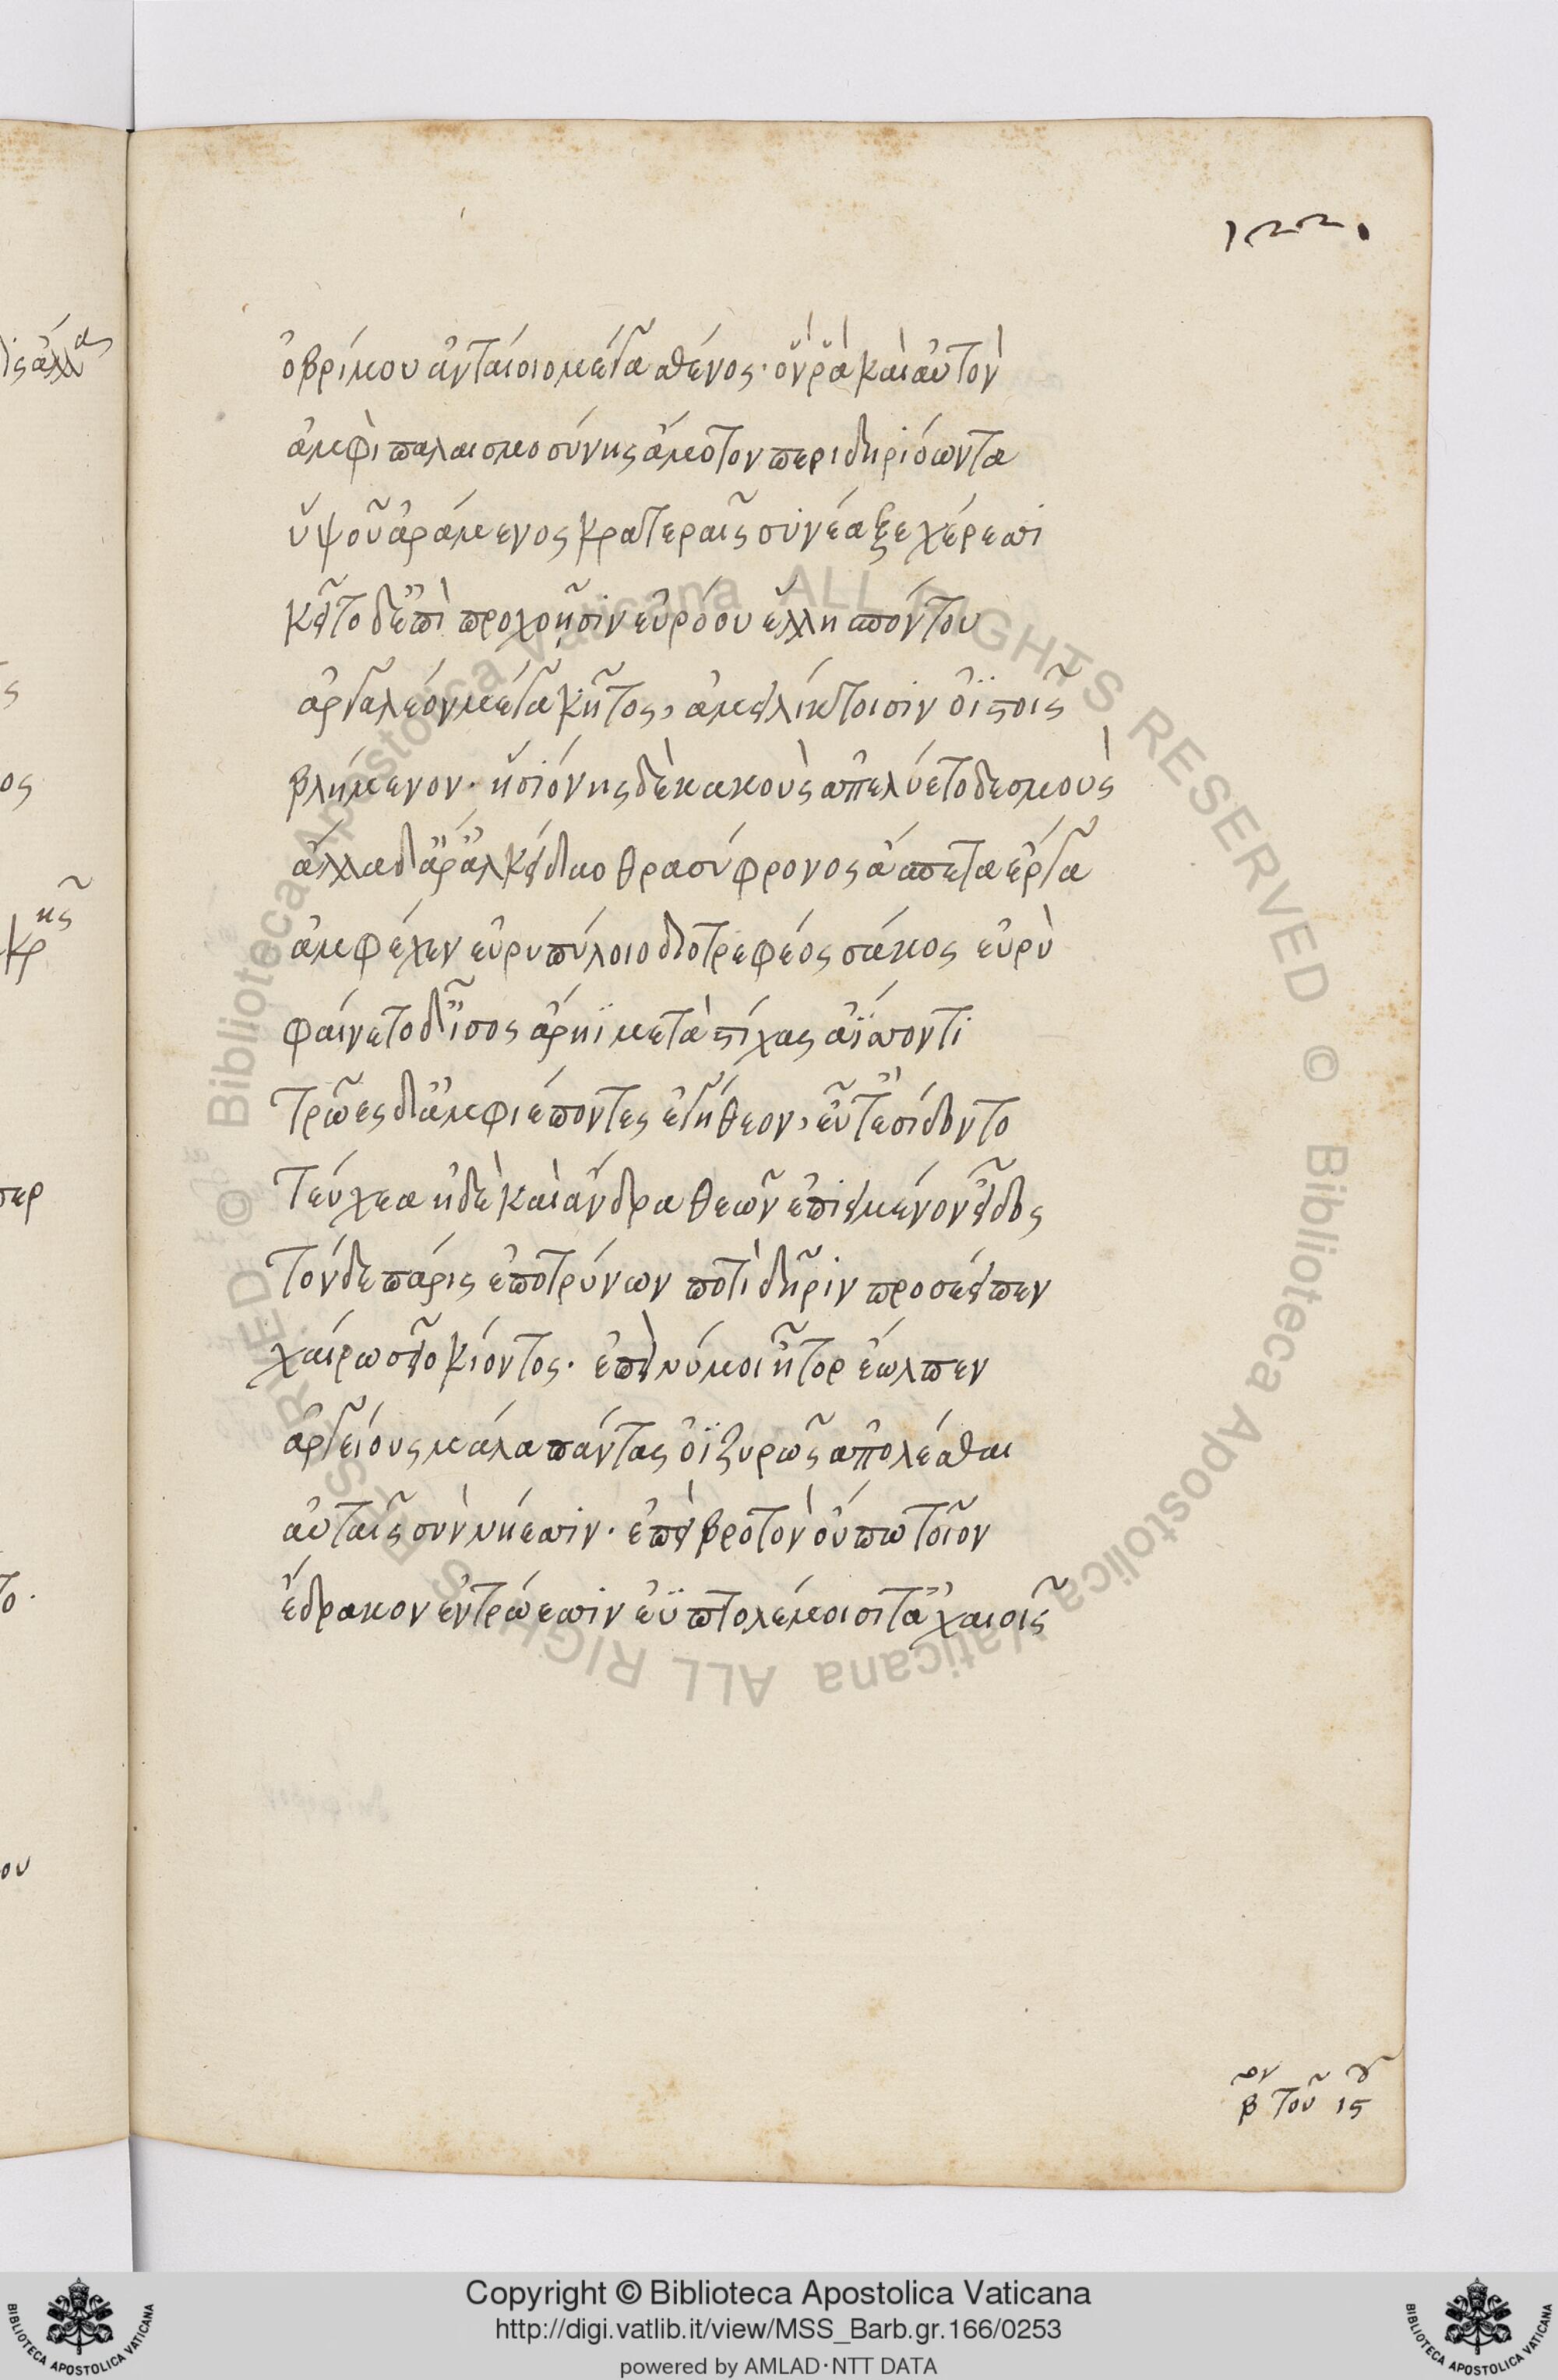 122.
ὀβρίμου ἀνταίοιο μέγα σθένος· ὅν ῥα καὶ αὐτὸν
ἀμφὶ παλαισμοσύνης ἄμοτον περιδηριόωντα
ὑψοῦ ἀράμενος κρατεραῖς συνέαξε χέρεσσι
κεῖτο δ' ἐπὶ προχοῇσιν εὐρόου ἑλλησπόντου
ἀργαλέον μέγα κῆτος, ἀμειλίκτοισιν ὀϊστοῖς
βλήμενον· ἡσιόνης δὲ κακοὺς ἀπελύετο δεσμοὺς
ἄλλα δ' ἄρ' ἀλκείδαο θρασύφρονος ἄσπετα ἔργα
ἄμφεχεν εὐρυπύλοιο διοτρεφέος σάκος εὐρὺ
φαίνετο δ' ἶσος ἄρηϊ μετὰ στίχας ἀΐσσοντι
Τρῶες δ' ἀμφιέποντες ἐγήθεον, εὖτ' ἐσίδοντο
Τεύχεα ἠδὲ καὶ ἄνδρα θεῶν ἐπιειμένον εἶδος
Τόνδε πάρις ἐποτρύνων ποτὶ δῆριν προσέειπεν
χαίρω σεῖο κιόντος· ἐπεὶ νύ μοι ἦτορ ἔωλπεν
ἀργείους μάλα πάντας ὀϊζυρῶς ἀπολέσθαι
αὐταῖς σὺν νήεσσιν· ἐπεὶ βροτὸν οὔπω τοῖον
ἔδρακον ἐν τρώεσσιν ἐϋπτολέμοισί τ' ἀχαιοῖς
β^ον τοῦ ιϛ^ου
Copyright © Biblioteca Apostolica Vaticana
http://digi.vatlib.it/view/MSS_Barb.gr.166/0253
powered by AMLAD·NTT DATA